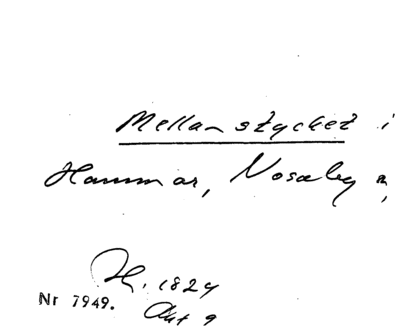 Mellanstycket i
Hammar, Nosaby
H. 1824
Nr 7949. Akt 9